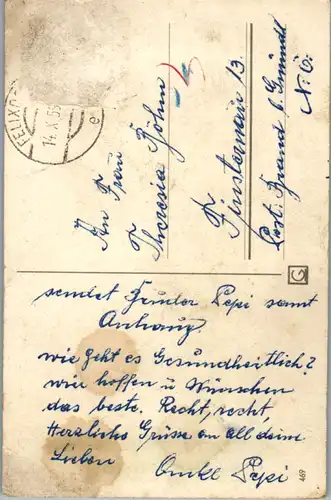 FELIXD
14.X.55
e
An Frau
Theresia Böhm
Finsternau 13.
Post. Brand b. Gmünd
N.Ö.
G
sendet Bruder Pepi samt
Anhang.
wie geht es Gesundheitlich?
wir hoffen u Wünschen
das beste. Recht, recht
Herzliche Grüsse an all deine
Lieben
Onkl Pepi
469